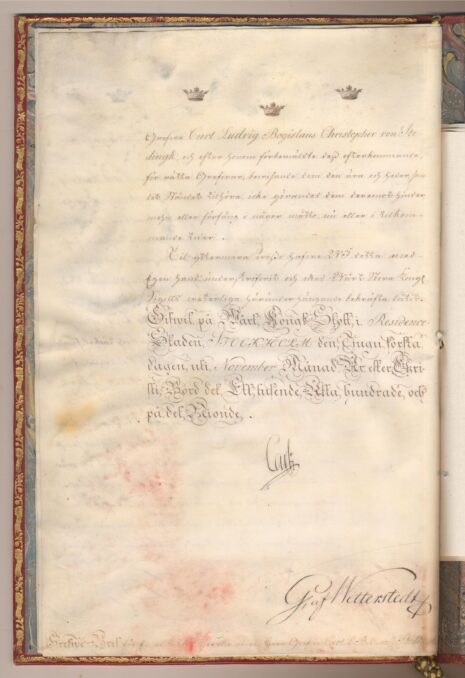 Grefven Curt Ludvig Bogislaus Christopher von Ste-
dingk, och efter honom förbemälte dess efterkommande,
för rätta Grefvar, som den äran och
det Ståndet tilhöra, icke görandes dem häremot hinder
mehn eller förfång i någor måtto, nu eller i tilkom-
mande tider.
Til yttermera visso hafve Wi detta med
Egen hand underskrifvit och med Vårt Stora Kongl.
Sigill hängande bekräfta låtit.
Gifwit på Vårt Kongl. Slott, i Residence
Staden STOCKHOLM den Tjugu
dagen, uti November Månad År efter Chri-
sti Börd det Ett tusende, Åtta hundrade, och
på det Nionde.
Carl
Graf Wetterstedt
Grefve